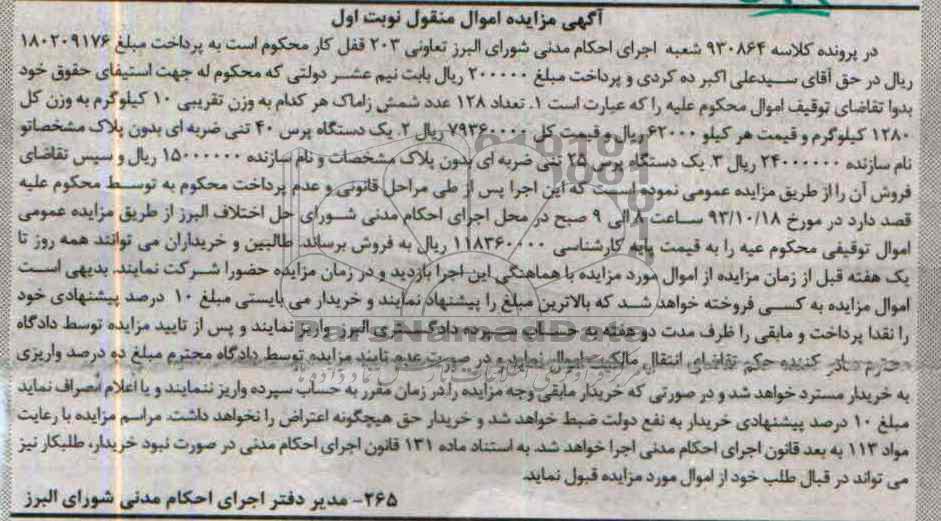 آگهی مزایده اموال منقول نوبت اول
در پرونده کلاسه ۹۳۰۸۶۴ شعبه اجرای احکام مدنی شورای البرز تعاونی ۲۰۳ قفل کار محکوم است به پرداخت مبلغ ۱۸۰۲۰۹۱۷۶
ریال در حق آقای سیدعلی اکبر ده کردی و پرداخت مبلغ ۲۰۰۰۰۰ ریال بابت نیم عشر دولتی که محکوم له جهت استیفای حقوق خود
بدوا تقاضای توقیف اموال محکوم علیه را که عبارت است ۱. تعداد ۱۲۸ عدد شمش زاماک هر کدام به وزن تقریبی ۱۰ کیلوگرم به وزن کل
۱۲۸۰ کیلوگرم و قیمت هر کیلو ۶۲۰۰۰ ریال و قیمت کل ۷۹۳۶۰۰۰۰ ریال ۲. یک دستگاه پرس ۴۰ تنی ضربه ای بدون پلاک مشخصاتو
نام سازنده ۲۴۰۰۰۰۰۰ ریال ۳. یک دستگاه پرس ۲۵ تنی ضربه ای بدون پلاک مشخصات و نام سازنده ۱۵۰۰۰۰۰۰ ریال و سپس تقاضای
فروش آن را از طریق مزایده عمومی نموده است که این اجرا پس از طی مراحل قانونی و عدم پرداخت محکوم به توسط محکوم علیه
قصد دارد در مورخ ۹۳/۱۰/۱۸ ساعت ۸ الی ۹ صبح در محل اجرای احکام مدنی شورای حل اختلاف البرز از طریق مزایده عمومی
اموال توقیفی محکوم عیه را به قیمت پایه کارشناسی ۱۱۸۳۶۰۰۰۰ ریال به فروش برساند. طالبین و خریداران می توانند همه روز تا
یک هفته قبل از زمان مزایده از اموال مورد مزایده با هماهنگی این اجرا بازدید و در زمان مزایده حضورا شرکت نمایند. بدیهی است
اموال مزایده به کسی فروخته خواهد شد که بالاترین مبلغ را پیشنهاد نمایند و خریدار می بایستی مبلغ ۱۰ درصد پیشنهادی خود
را نقدا پرداخت و مابقی را ظرف مدت دو هفته به حساب سپرده دادگستری البرز واریز نمایند و پس از تایید مزایده توسط دادگاه
محترم صادر کننده حکم تقاضای انتقال مالکیت اموال نماید و در صورت عدم تایید مزایده توسط دادگاه محترم مبلغ ده درصد واریزی
به خریدار مسترد خواهد شد و در صورتی که خریدار مابقی وجه مزایده را در زمان مقرر به حساب سپرده واریز ننمایند و یا اعلام انصراف نماید
مبلغ ۱۰ درصد پیشنهادی خریدار به نفع دولت ضبط خواهد شد و خریدار حق هیچگونه اعتراض را نخواهد داشت. مراسم مزایده با رعایت
مواد ۱۱۳ به بعد قانون اجرای احکام مدنی اجرا خواهد شد. به استناد ماده ۱۳۱ قانون اجرای احکام مدنی در صورت نبود خریدار، طلبکار نیز
می تواند در قبال طلب خود از اموال مورد مزایده قبول نماید.
۲۶۵- مدیر دفتر اجرای احکام مدنی شورای البرز
ParsNamadData